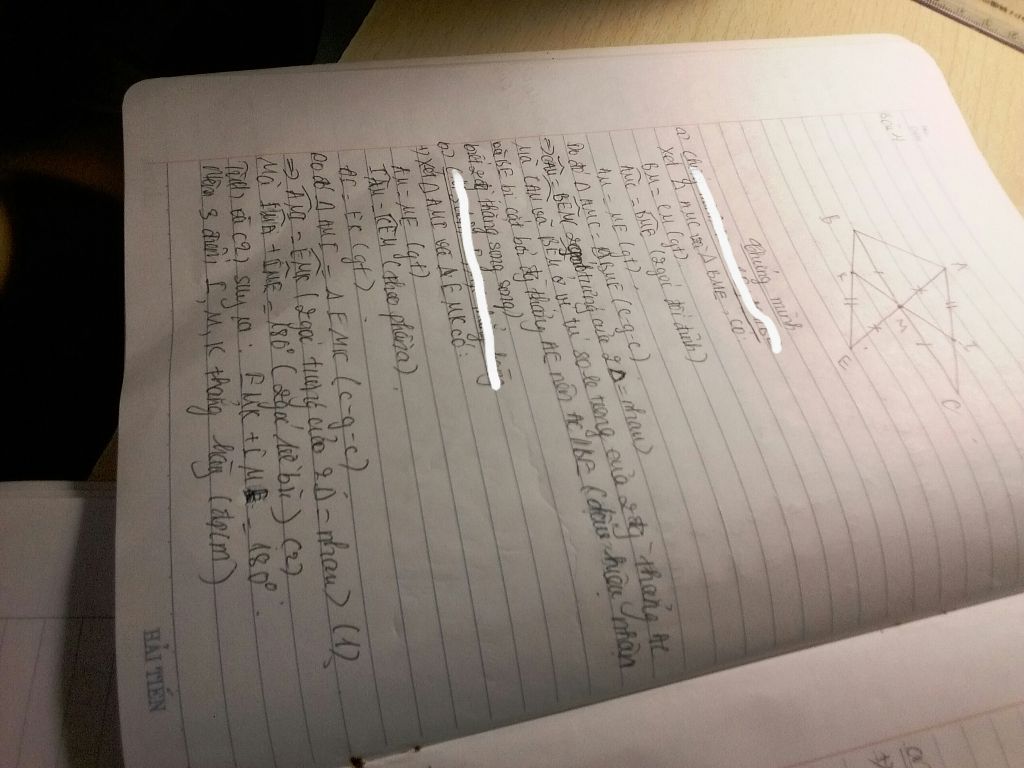 Bài 1
A
B
I
K
M
E
C
Chứng minh
a)
Xét Δ AMC và Δ BME, có:
BM = CM (gt)
AMC = BME (2 góc đối đỉnh)
AM = ME (gt)
Do đó Δ AMC = Δ BME (c-g-c)
⇒ CAM = BEM 2 góc tương ứng của 2 Δ = nhau)
Mà CAM và BEM ở vị trí so le trong của 2 đg thẳng AC
và BE bị cắt bởi đg thẳng AE nên AC // BE (dấu hiệu nhận
biết 2 đg thẳng song song)
b)
+) Xét Δ AMI và Δ EMK có:
AM = ME (gt)
IAM = KEM (cm ở phần a)
AI = EK (gt)
Do đó Δ AMI = Δ EMK (c-g-c)
⇒ AMI = EMK (2 góc tương ứng của 2 Δ = nhau) (1)
Mà IMA + IME = 180° (2 góc kề bù) (2)
Từ (1) và (2) suy ra: EMK + IME = 180°
Nên 3 điểm I, M, K thẳng hàng (đpcm)
HẢI TIẾN